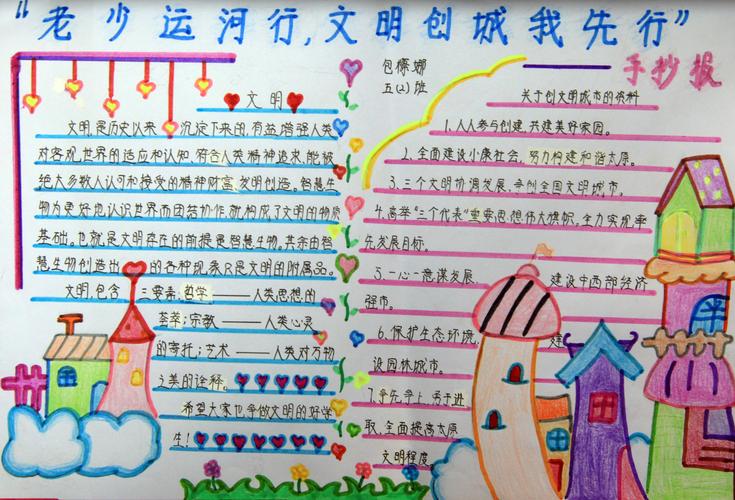 “老少运河行,文明创城我先行”
手抄报
包
五(2)班
文明
文明,是历史以来沉淀下来的,有益增强人类
对客观世界的适应和认知、符合人类精神追求、能被
绝大多数人认可和接受的精神财富、发明创造。智慧生
物为更好地认识世界而团结协作就构成了文明的物质
基础。也就是文明存在的前提是智慧生物。其余由智
慧生物创造出的各种现象只是文明的附属品。
文明,包含三要素:哲学——人类思想的
荟萃;宗教——人类心灵
的寄托;艺术——人类对万物
之美的诠释。
希望大家也争做文明的好学
生!
关于创文明城市的资料
1、人人参与创建,共建美好家园。
2、全面建设小康社会,努力构建和谐太原。
3、三个文明协调发展,争创全国文明城市。
4、高举“三个代表”重要思想伟大旗帜,全力实现率
先发展目标。
5、一心一意谋发展,建设中西部经济
强市。
6、保护生态环境,建
设园林城市。
7、争先争上,勇于进
取,全面提高太原
文明程度。